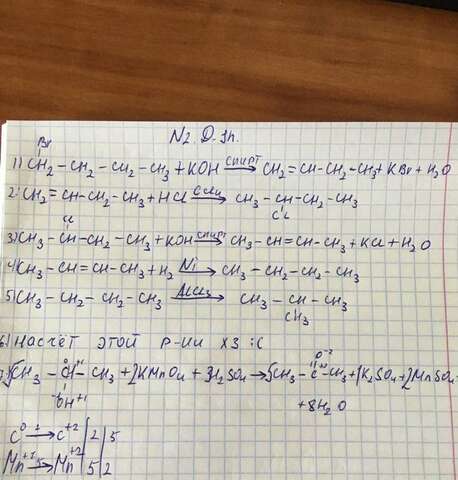 N2. D. Зn.
Br
1) CH2 – CH2 – CH2 – CH3 + KOH спирт → CH2 = CH – CH2 – CH3 + KBr + H2O
2) CH2 = CH – CH2 – CH3 + HCl → CH3 – CH – CH2 – CH3
Cl
Cl
3) CH3 – CH – CH2 – CH3 + KOH спирт → CH3 – CH = CH – CH3 + KCl + H2O
4) CH3 – CH = CH – CH3 + H2 Ni → CH3 – CH2 – CH2 – CH3
5) CH3 – CH2 – CH2 – CH3 AlCl3 → CH3 – CH – CH3
CH3
6) Насчёт этой р-ии хз :С
O-2
5CH3 – CH – CH3 + 2KMnO4 + 3H2SO4 → 5CH3 – C – CH3 + 1K2SO4 + 2MnSO4
OH+1
+ 8H2O
C0 → C+2 | 2 | 5
Mn+7 5 → Mn+2 | 5 | 2